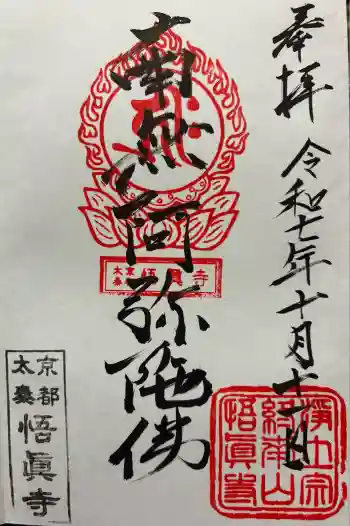 奉拝
令和七年十月十一日
南無阿弥陀佛
太秦
京
悟眞寺
浄土宗
終南山
悟眞寺
京都
太秦
悟眞寺